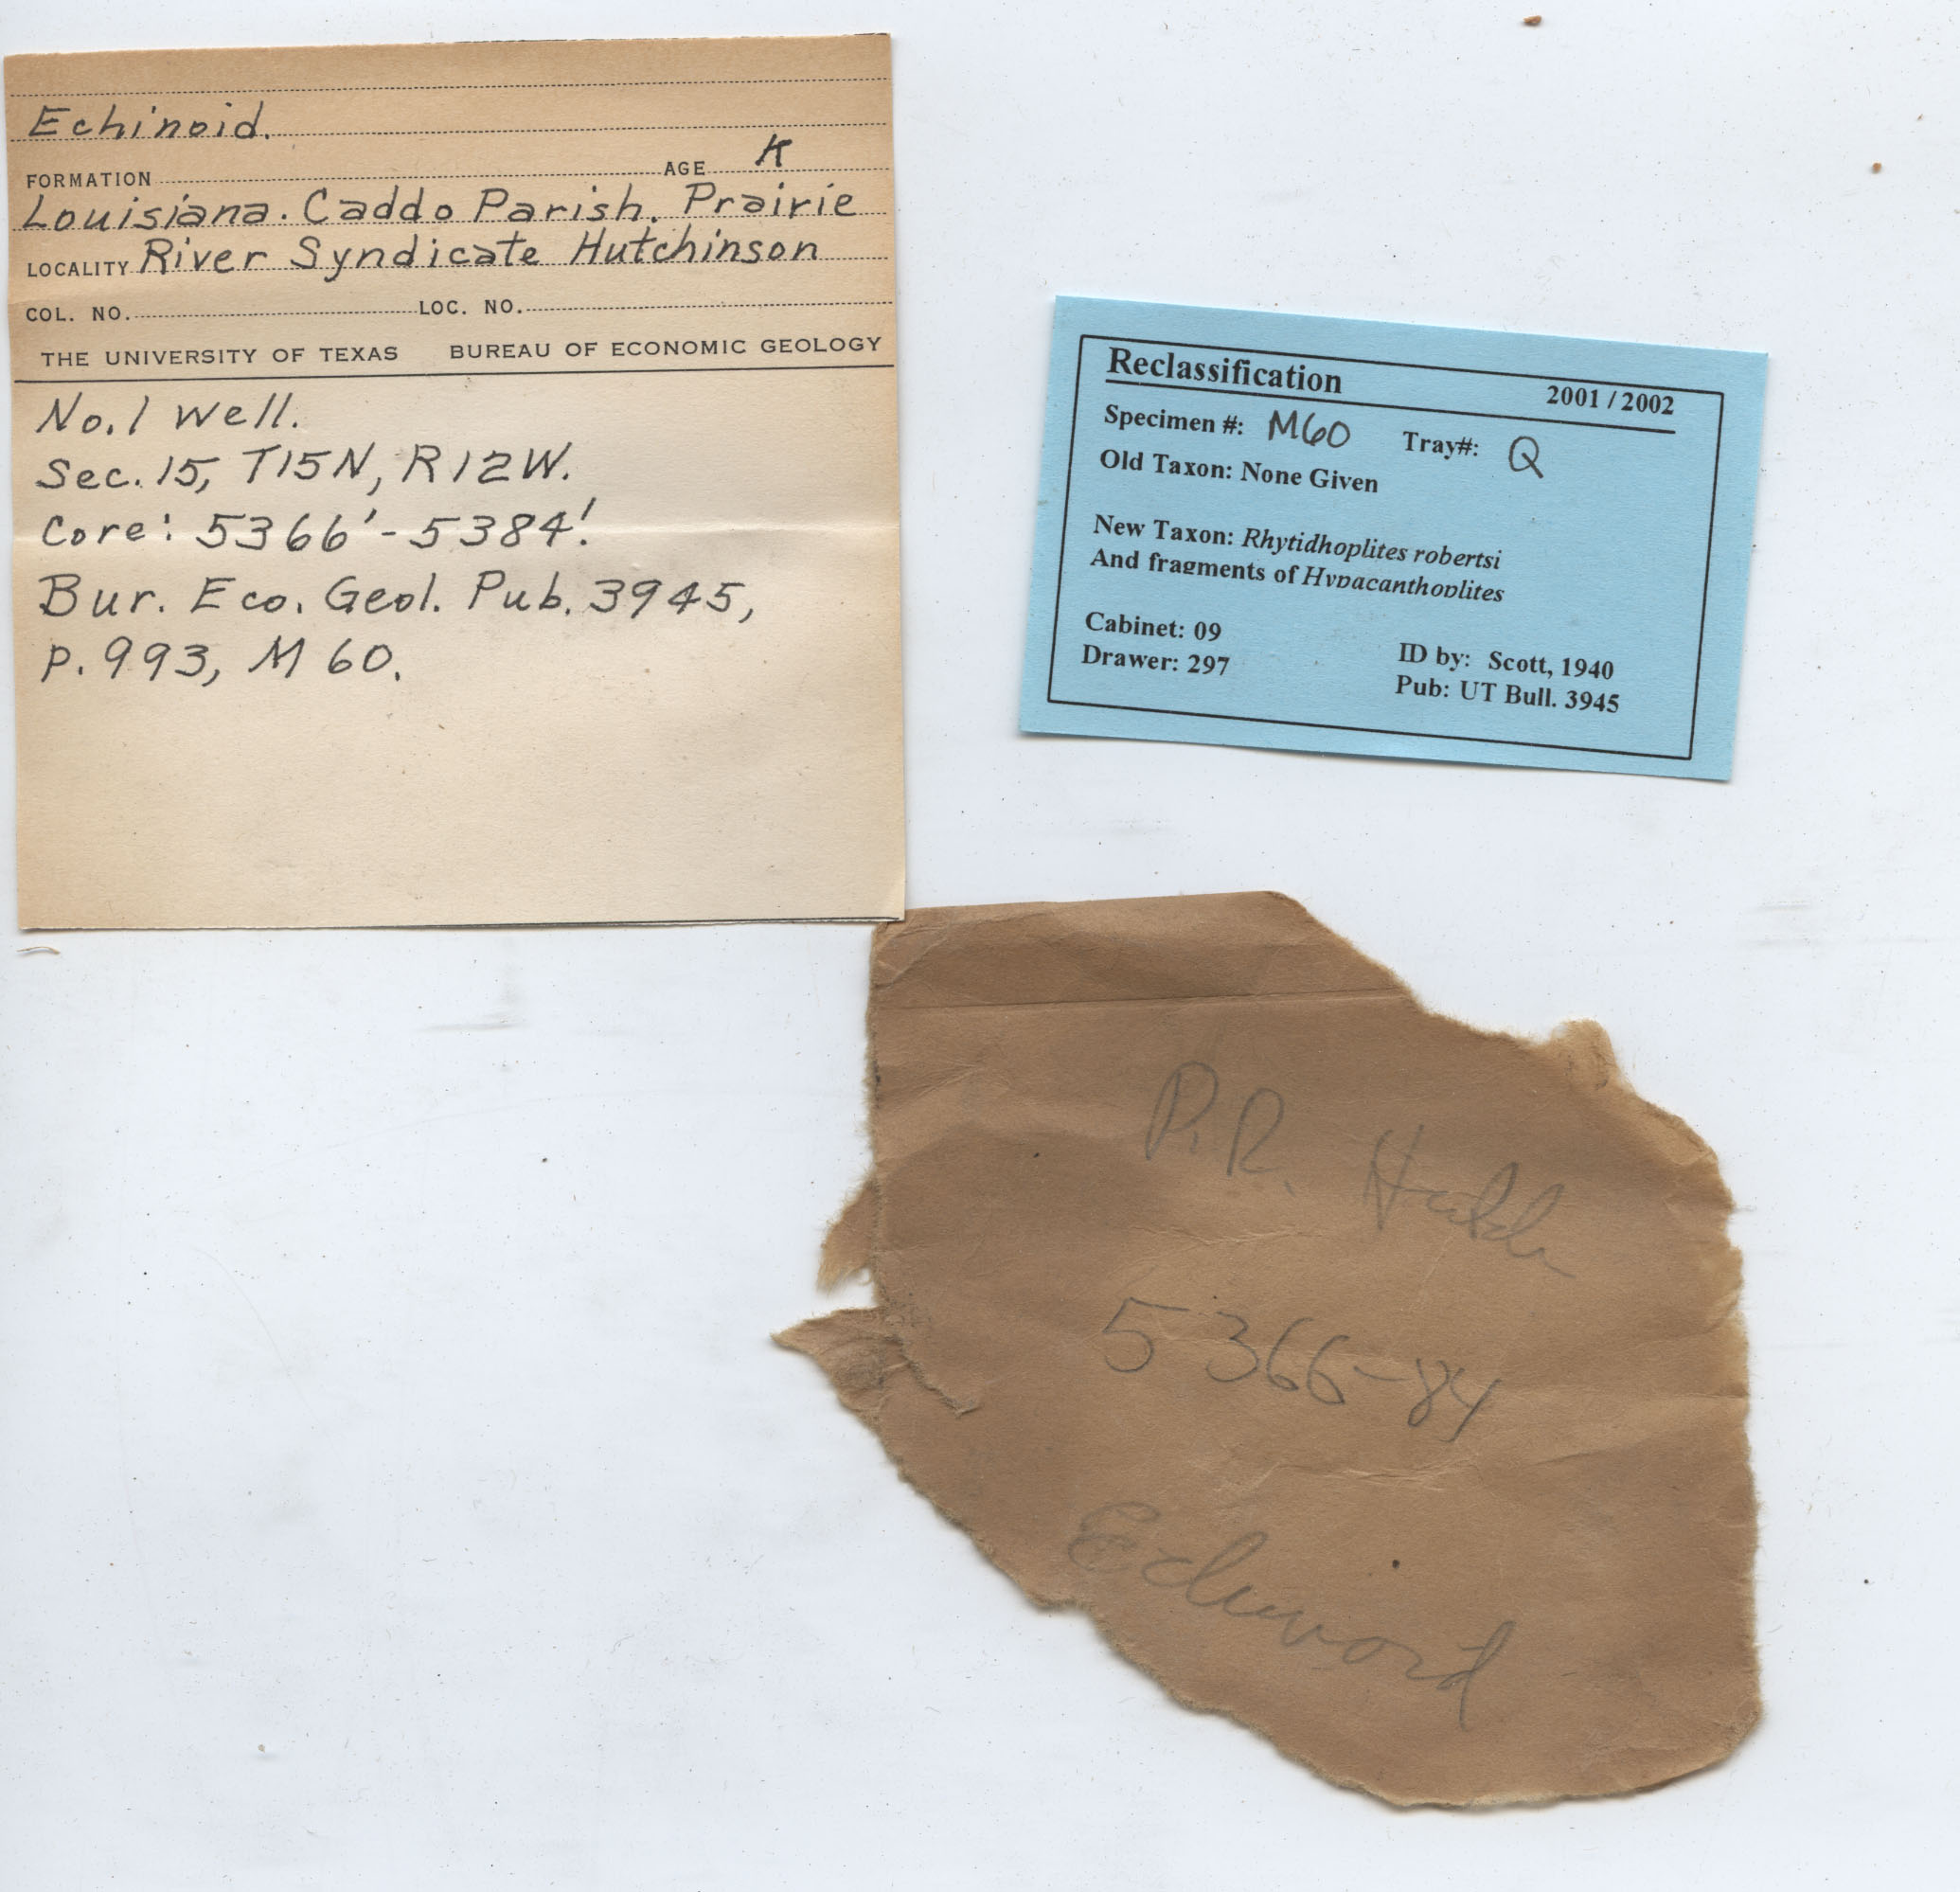 Echinoid.
FORMATION AGE K
Louisiana. Caddo Parish. Prairie
LOCALITY River Syndicate Hutchinson
COL. NO. LOC. NO.
THE UNIVERSITY OF TEXAS BUREAU OF ECONOMIC GEOLOGY
No. 1 well.
Sec. 15, T15N, R12W.
Core: 5366'-5384'.
Bur. Eco. Geol. Pub. 3945,
p. 993, M 60.
Reclassification 2001 / 2002
Specimen #: M60 Tray#: Q
Old Taxon: None Given
New Taxon: Rhytidhoplites robertsi
And fragments of Hypacanthoplites
Cabinet: 09
Drawer: 297
ID by: Scott, 1940
Pub: UT Bull. 3945
P.R.
5366-84
Echinoid